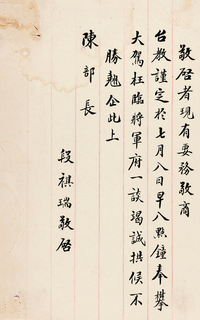 敬啓者現有要務敬商
台教謹定於七月八日早八點鐘奉攀
大駕枉臨將軍府一談竭誠拱候不
勝翹企此上
陳部長
段祺瑞敬啓